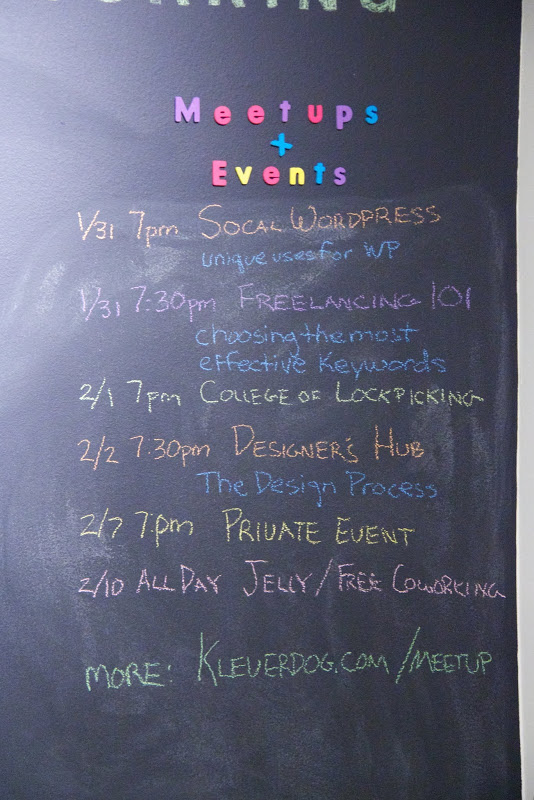 Meetups
+
Events
1/31 7pm SOCAL WORDPRESS
unique uses for WP
1/31 7:30pm FREELANCING 101
choosing the most
effective Keywords
2/1 7pm COLLEGE OF LOCKPICKING
2/2 7:30pm DESIGNER'S HUB
The Design Process
2/7 7:pm PRIVATE EVENT
2/10 ALL DAY JELLY/FREE COWORKING
MORE: KLEVERDOG.COM/MEETUP